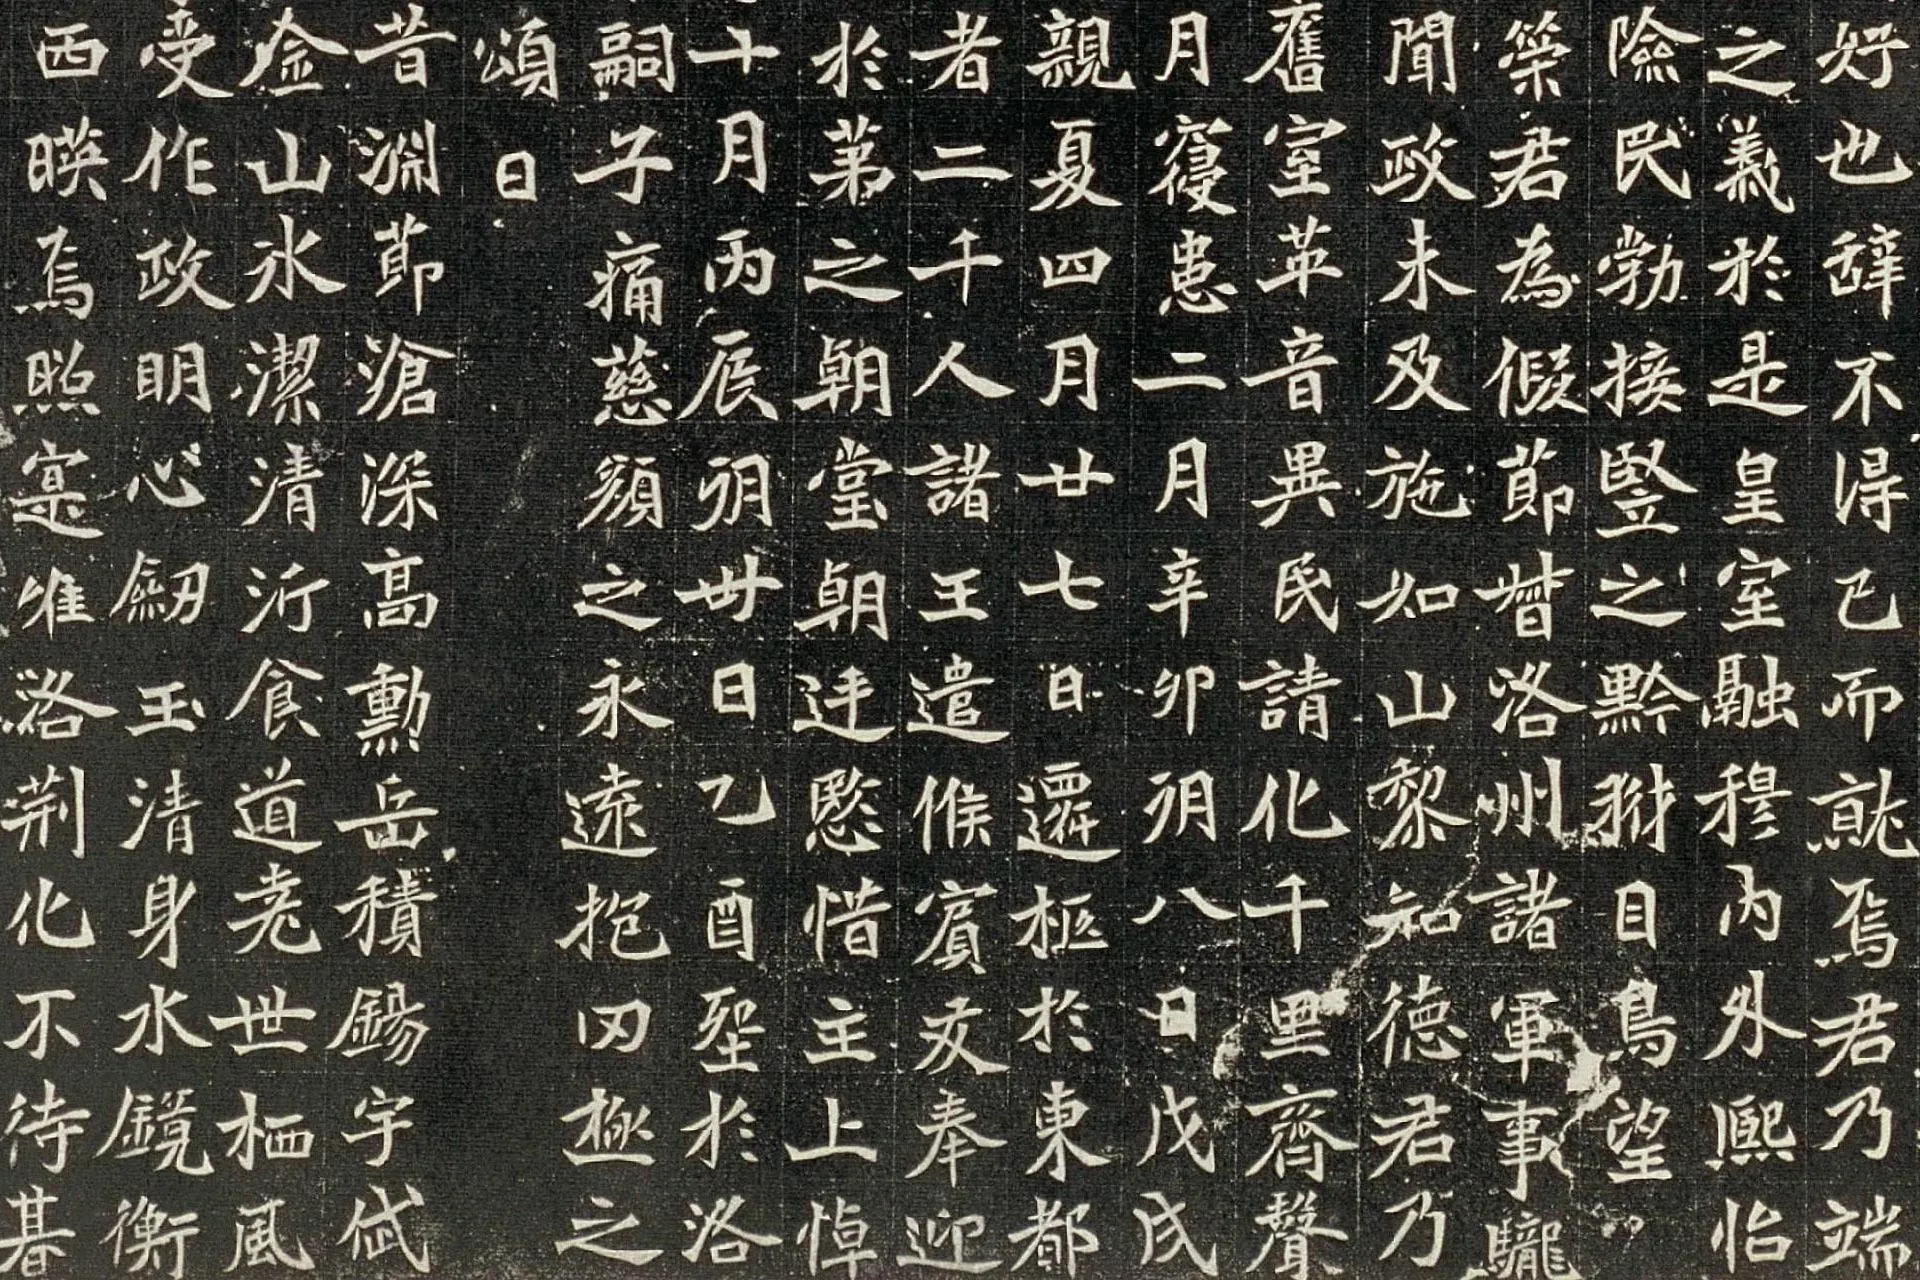 好也辞不得已而就焉君乃端
之義於是皇室融穆内外熙怡
險民勃接竪之黔豺目鳥望〻
榮君為假節督洛州諸軍事驪
聞政未及施如山黎知德君乃
舊室革音異民請化千里齊聲
月寑患二月辛卯朔八日戊戌
親夏四月廿七日遷柩於東都
者二千人諸王遣候賓友奉迎
於第之朝堂朝廷愍惜主上悼
十月丙辰朔卅日乙酉堲於洛
嗣子痛慈顔之永遠抱罔極之
頌曰
昔淵節滄深高勳岳積錫宇岱
金山水潔清沂食道尭世栖風
受作政明心劒玉清身水鏡衡
西暎焉照寔惟洛荆化不待朞